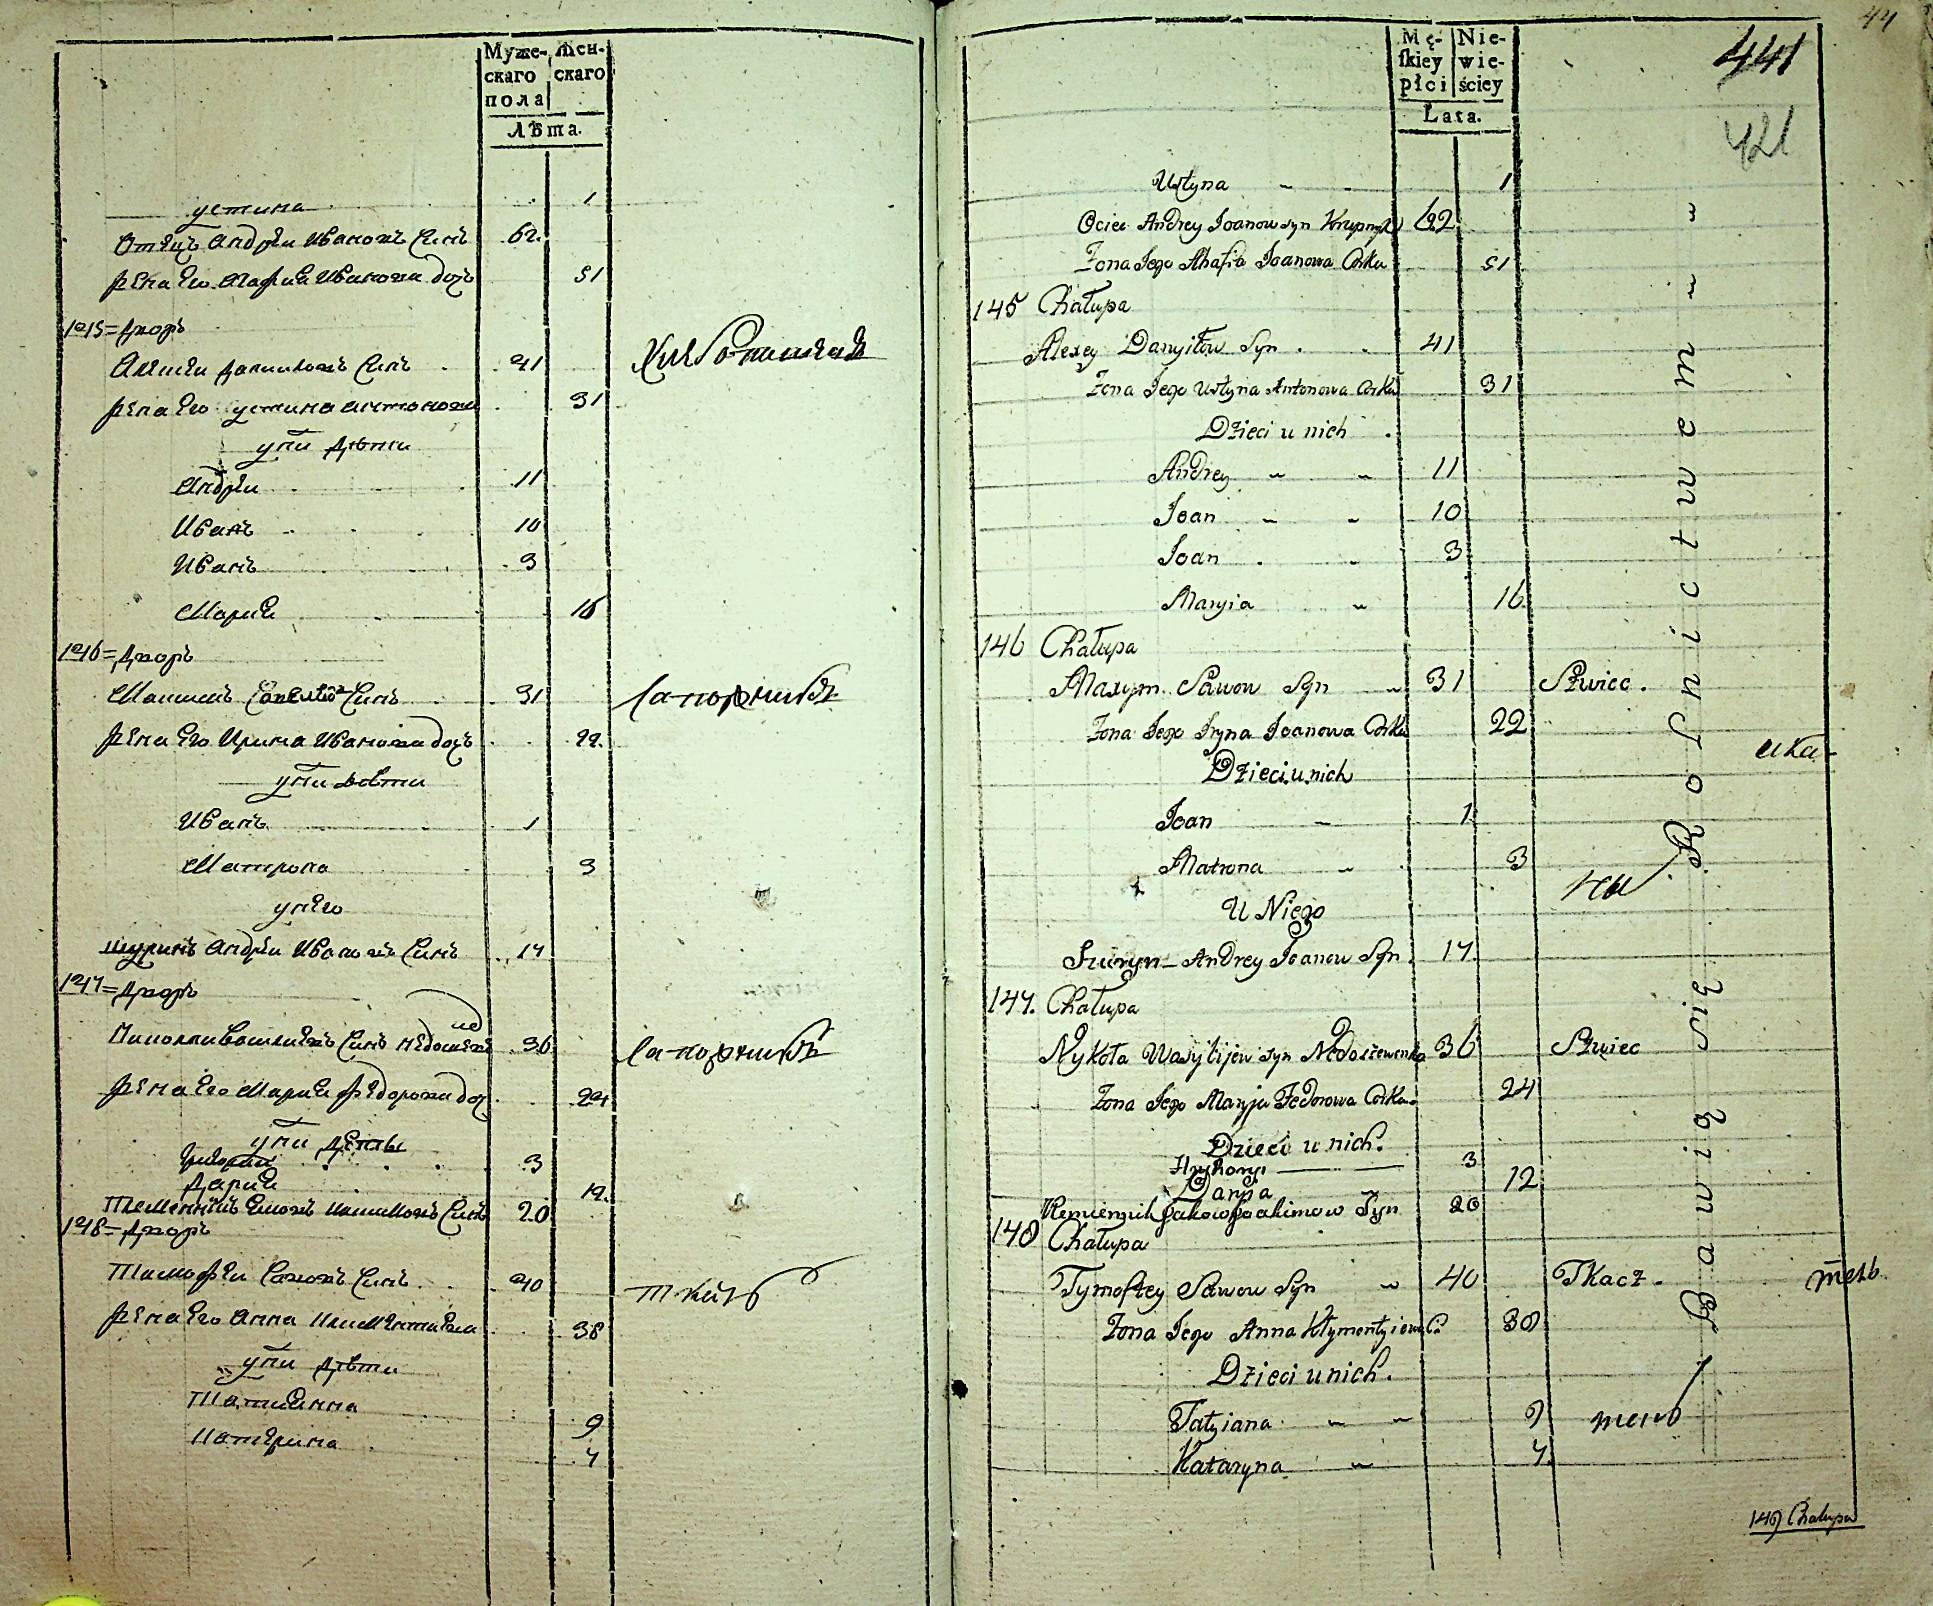 Муже-
скаго
пола
Жен-
скаго
Лѣта.
устина 1
Отецъ Андреи Ивановъ Синъ 62
жена Его Агафия Ивановна дочь 51
145 = Дворъ
Алексеи даниловъ Синъ 41 Хлебопашецъ
жена Его устина антонова 31
у ни Дѣти
Андреи 11
Иванъ 10
Иванъ 3
Мария 16
146 = Дворъ
Максимъ Савеliоvъ Синъ 31 Сапожникъ
жена Его Ирина Иванова дочь 22
у ни дѣти
Иванъ 1
Матрона 3
у него
шуринъ Андреи Ивановъ Синъ 17
147 = Дворъ
Никола Василиевъ Синъ 36 Сапожникъ
жена Его Мария Федорова доч 24
у ни Дети
Григории 3
Дария 12
Племенникъ Еаковъ Иакимовъ Синъ 20
148 = Дворъ
Тимофеи Савовъ Синъ 40 ткачь
жена Его Анна Климентиева 38
у ни дѣти
Татианна 9
Катерина 7
44
Mę-
skiey
płci
Nie-
wie-
ściey
Lata.
441
421
Ustyna 1
Ociec Andrey Joanow syn 62
Żona Jego Ahafia Joanowa Corka 51
145 Chałupa
Alexey Danyiłow Syn 41
Żona Jego Ustyna Antonowa Corka 31
Dzieci u nich
Andrey 11
Joan 10
Joan 3
Maryia 16
146 Chałupa
Maxym Sawow Syn 31 Szwiec.
Żona Jego Iryna Joanowa Corka 22
Dzieci u nich
Joan 1
Matrona 3
U Niego
Szuryn Andrey Joanow Syn 17
147. Chałupa
Nykoła Wasylijew syn Nedoszewenko 36 Szwiec
Żona Jego Maryja Fedorowa Corka 24
Dzieci u nich.
Hryhory 3
Darya 12
Plemiennik Jakow Joakimow Syn 20
148 Chałupa
Tymoftey Sawow Syn 40 Tkacz
Żona Jego Anna Kłymentyiowa C. 38
Dzieci u nich.
Tatyiana 9
Kataryna 7
Bawią się Rolnictwem
149 Chałupa